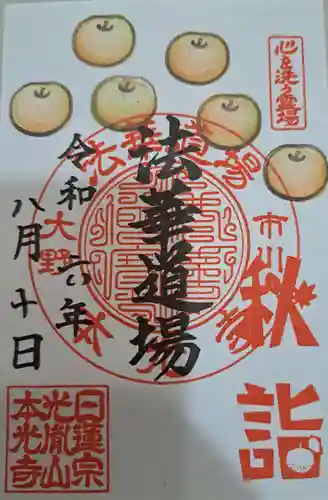 心を洗う霊場
法華道場
令和六年
八月十日
法華道場
市川
大野
秋詣
日蓮宗
光胤山
本光寺